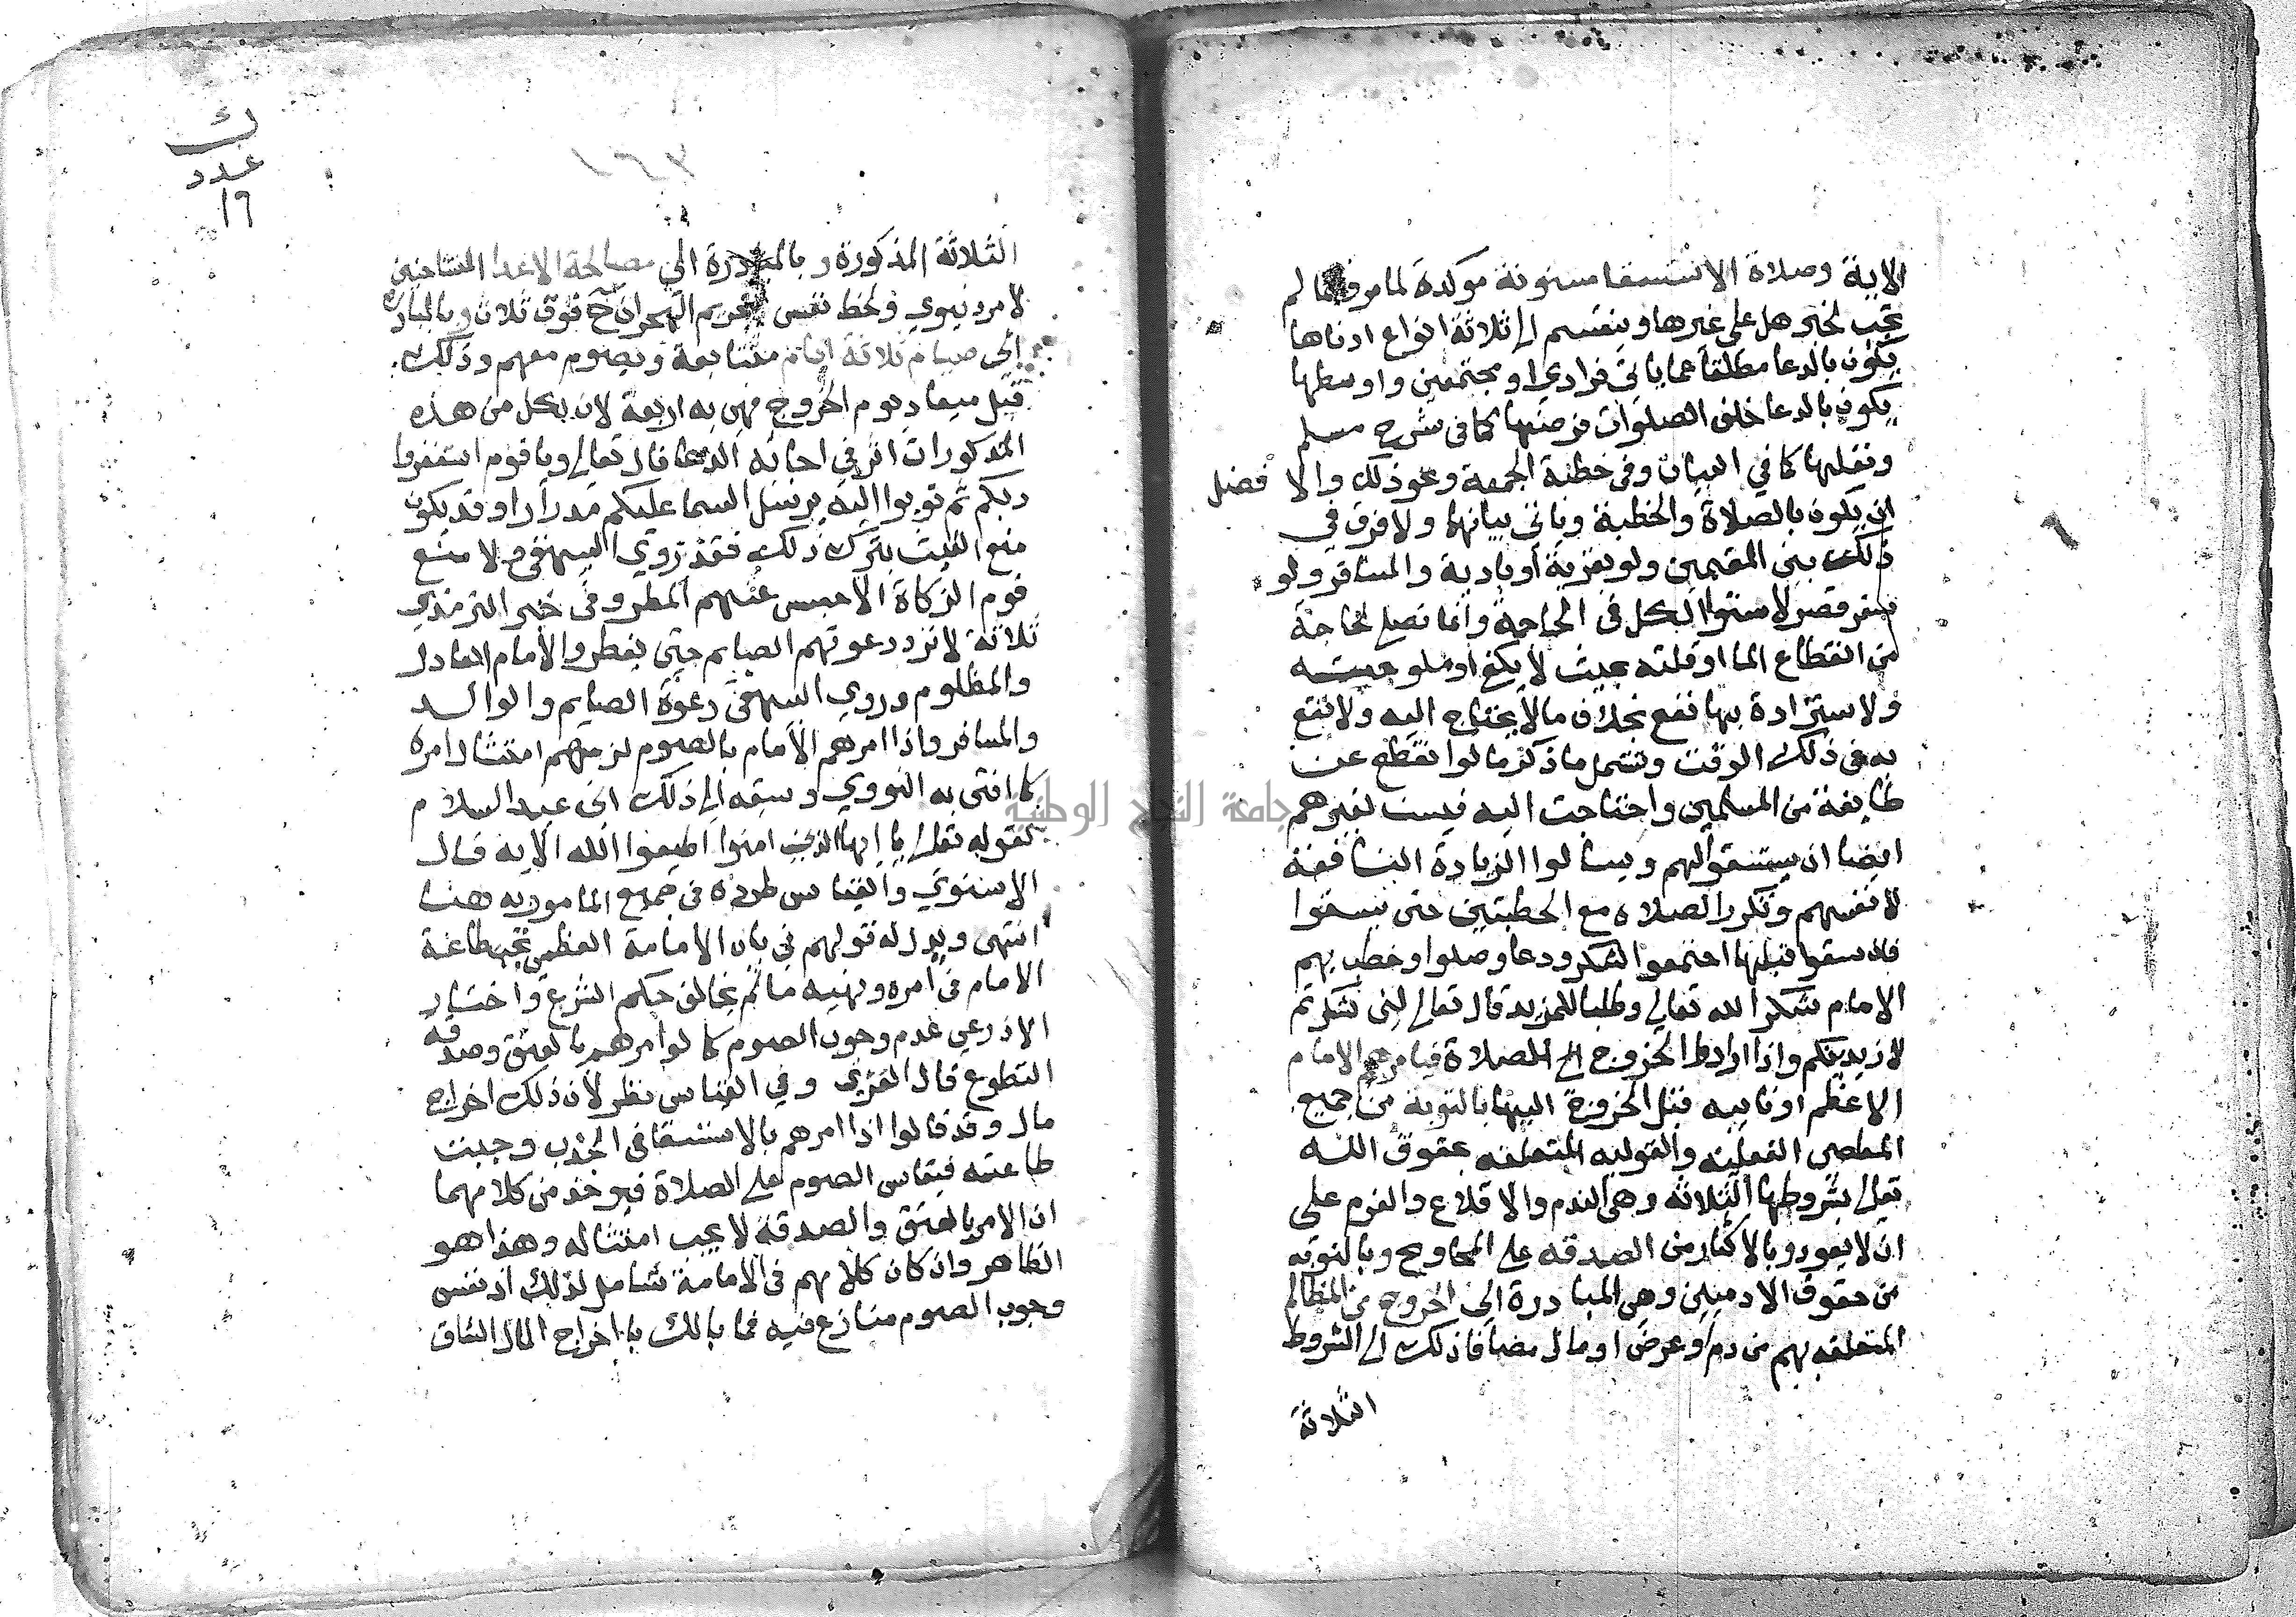 الاية وصلاة الاستسقا مسنونة موكدة لما مر وانما لم
تجب لخبر هل علي غيرها وينقسم الي ثلاثة انواع ادناها
يكون بالدعا مطلقا عما ياتي فرادي او مجتمعين واوسطها
يكون بالدعا خلف الصلوات فرضها كما في شرح مسلم
ونفلها كما في البيان وفي خطبة الجمعة ونحو ذلك والافضل
ان يكون بالصلاة والخطبة وياتي بيانهما ولا فرق في
ذلك بين المقيمين ولو بقرية او بادية والمسافر ولو
سفر قصر لاستوا الكل في الحاجة وانما تصلي لحاجة
من انقطاع الما او قلته بحيث لا يكفي او ملوحته
ولاستزادة بها نفع بخلاف مالا يحتاج اليه ولا نفع
به في ذلك الوقت وتشمل ما ذكر ما لو انقطع عن
طايفة من المسلمين واحتاجت اليه فيسن لغيرهم
ايضا ان يستسقوا لهم ويسالوا الزيادة النافعة
لانفسهم وتكرر الصلاه مع الخطبتين حتى يسقوا
فان سقوا قبلها اجتمعوا لشكر ودعا وصلوا وخطب بهم
الامام شكرا لله تعالي وطلبا للمزيد قال تعالي لين شكرتم
لازيدنكم واذا ارادوا الخروج الي الصلاة فيامرهم الامام
الاعظم او نايبه قبل الخروج اليها بالتوبة من جميع
المعاصي الفعليه والقوليه المتعلقه بحقوق الله
تعالي بشروطها الثلاثه وهي الندم والاقلاع والعزم على
ان لا يعود وبالاكثار من الصدقه علي المحاويج وبالتوبه
من حقوق الادميين وهي المبادرة الي الخروج من المظالم
المتعلقه بهم من دم او عرض او مال مضافا ذلك الي الشروط
الثلاثة
ك
عدد
١٩
١٦٣
الثلاثة المذكورة وبالمبادرة الي مصالحة الاعدا المتشاحنين
لامر دنيوي ولحظ نفس لتحريم الهجران ح فوق ثلاث وبالمبادرة
الي صيام ثلاثة ايام متتابعة ويصوم معهم وذلك
قبل ميعاد يوم الخروج فهي به اربعة لان لكل من هذه
المذكورات اثر في اجابه الدعا قال تعالي ويا قوم استغفروا
ربكم ثم توبوا اليه يرسل السما عليكم مدرارا وقد يكون
منع الغيث بترك ذلك فقد روي البيهقي ولا منع
قوم الزكاة الا حبس عنهم المطر وفي خبر الترمذي
ثلاثة لا ترد دعوتهم الصايم حتى يفطر والامام العادل
والمظلوم وروي البيهقي دعوة الصايم والوالد
والمسافر واذا امرهم الامام بالصوم لزمهم امتثال امره
كما افتى به النووي وسبقه الي ذلك ابن عبد السلام
لقوله تعالي يا ايها الذين امنوا اطيعوا الله الايه قال
الاسنوي والقياس طرده في جميع المامور به هنا
انتهى ويدل له قولهم في باب الامامة العظمى تجب طاعة
الامام في امره ونهيه ما لم يخالف حكم الشرع واختار
الاذرعي عدم وجوب الصوم كما لو امرهم بالعتق وصدقه
التطوع قال الغزي وفي القياس نظر لان ذلك اخراج
مال وقد قالوا اذا امرهم بالاستسقا في الجدب وجبت
طاعته فيقاس الصوم علي الصلاة فيوخذ من كلامهما
ان الامر بالعتق والصدقة لا يجب امتثاله وهذا هو
الظاهر وان كان كلامهم في الامامة شامل لذلك اذ نفس
وجوب الصوم منازع فيه فما بالك باخراج المال الشاق
جامعة النجاح الوطنية